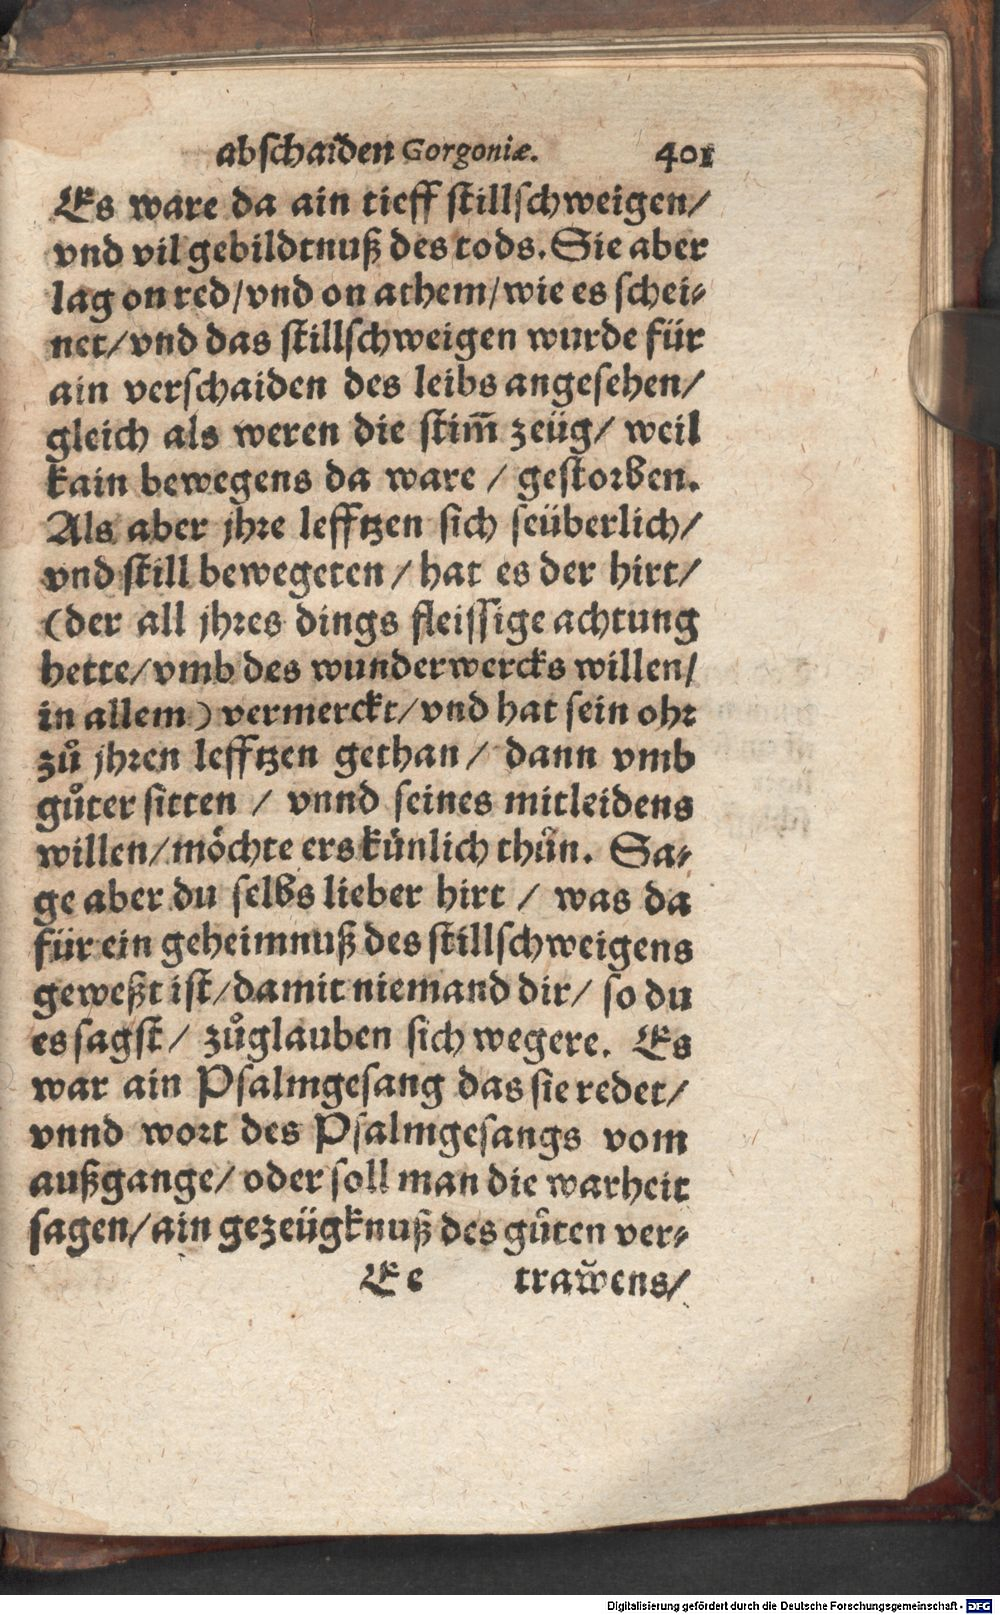 abschaiden Gorgoniæ. 401
Es ware da ain tieff stillschweigen/
vnd vil gebildtnuß des tods. Sie aber
lag on red/vnd on athem/wie es schei⸗
net/vnd das stillschweigen wurde für
ain verschaiden des leibs angesehen/
gleich als weren die stim̄ zeüg/ weil
kain bewegens da ware / gestorben.
Als aber jhre lefftzen sich seüberlich/
vnd still bewegeten / hat es der hirt/
(der all jhres dings fleissige achtung
hette/vmb des wunderwercks willen/
in allem) vermerckt/vnd hat sein ohr
zů jhren lefftzen gethan / dann vmb
gůter sitten / vnnd seines mitleidens
willen/möchte ers künlich thůn. Sa⸗
ge aber du selbs lieber hirt / was da
für ein geheimnuß des stillschweigens
geweßt ist/damit niemand dir/ so du
es sagst/ zůglauben sich wegere. Es
war ain Psalmgesang das sie redet/
vnnd wort des Psalmgesangs vom
außgange/ oder soll man die warheit
sagen/ain gezeügknuß des gůten ver⸗
Ee trawens/
Digitalisierung gefördert durch die Deutsche Forschungsgemeinschaft - DFG